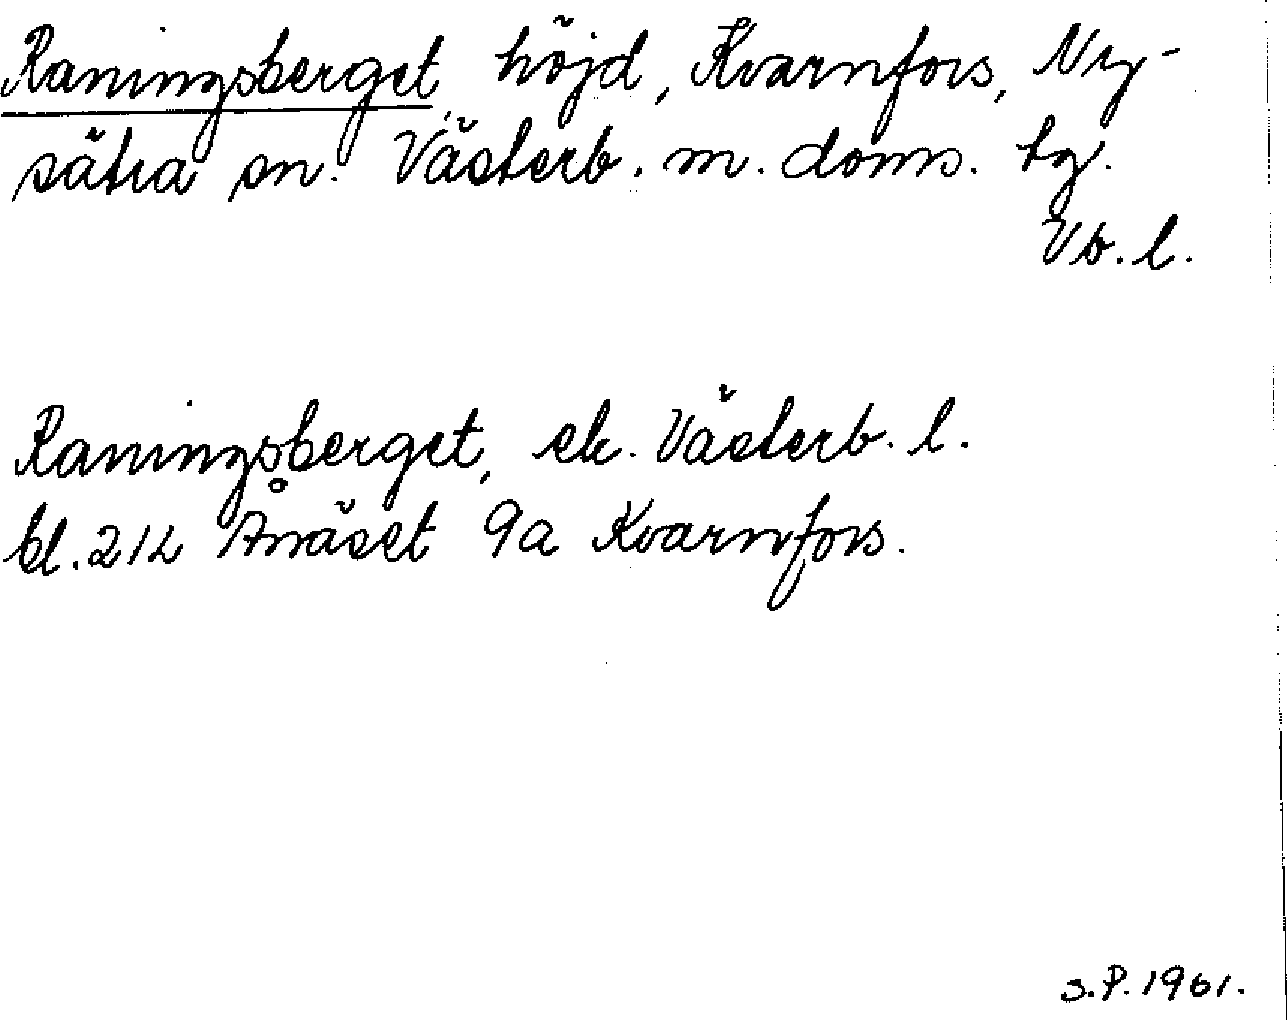 Raningsberget, höjd, Kvarnfors, Ny-
sätra sn. Västerb. m. doms. tg.
Vb. l.
Raningsberget, ek. Västerb. l.
bl. 212 Ånäset 9a Kvarnfors.
S.P. 1961.